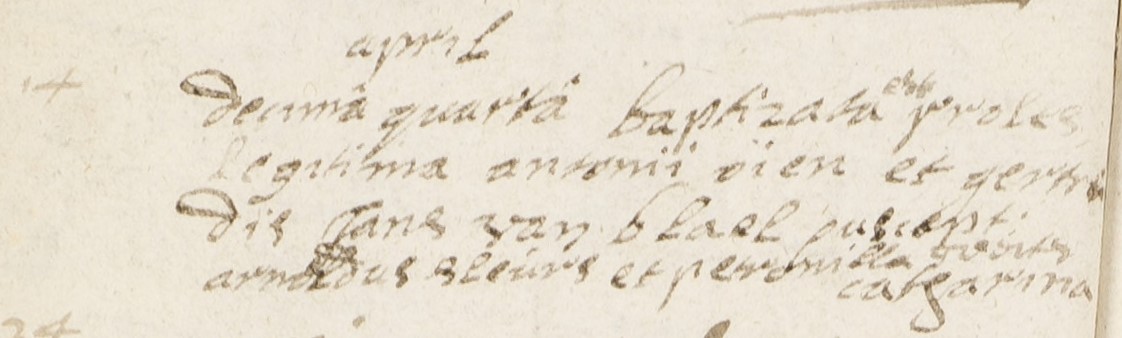 april
14 decima quarta baptizata est proles
legitima antonii oïen et gertru
dis Jans van blael suscept.
arnoldus sleurs et petronilla
catharina
24